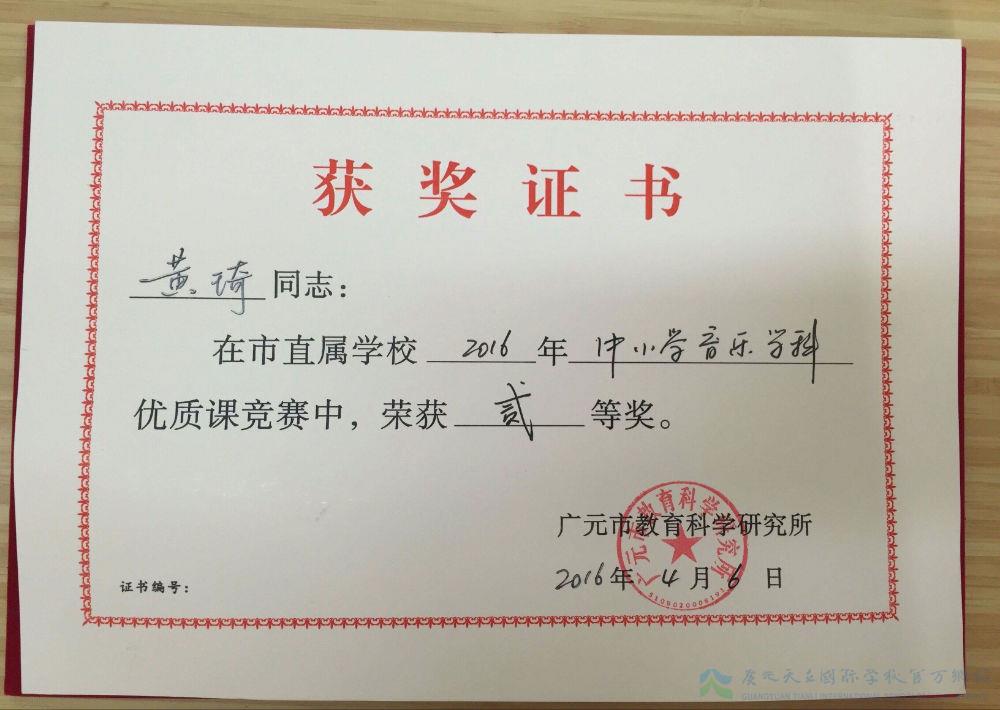 获奖证书
黄琦 同志：
在市直属学校 2016 年 中小学音乐学科
优质课竞赛中，荣获 贰 等奖。
广元市教育科学研究所
广元市教育科学研究所
2016年 4 月 6 日
证书编号：
广元天立国际学校官方网站